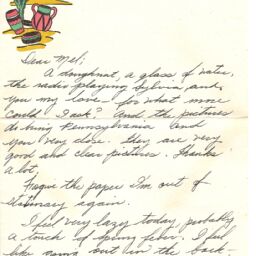 Dear Mel;
A doughnut, a glass of water,
the radio playing Sylvia and
you my love - for what more
could I ask? And the pictures
do bring Pennsylvania and
you very close. they are very
good and clear pictures. Thanks
a lot,
Forgive the paper I'm out of
stationary again.
I feel very lazy today, probably
a touch of spring fever. I feel
like going out in the back